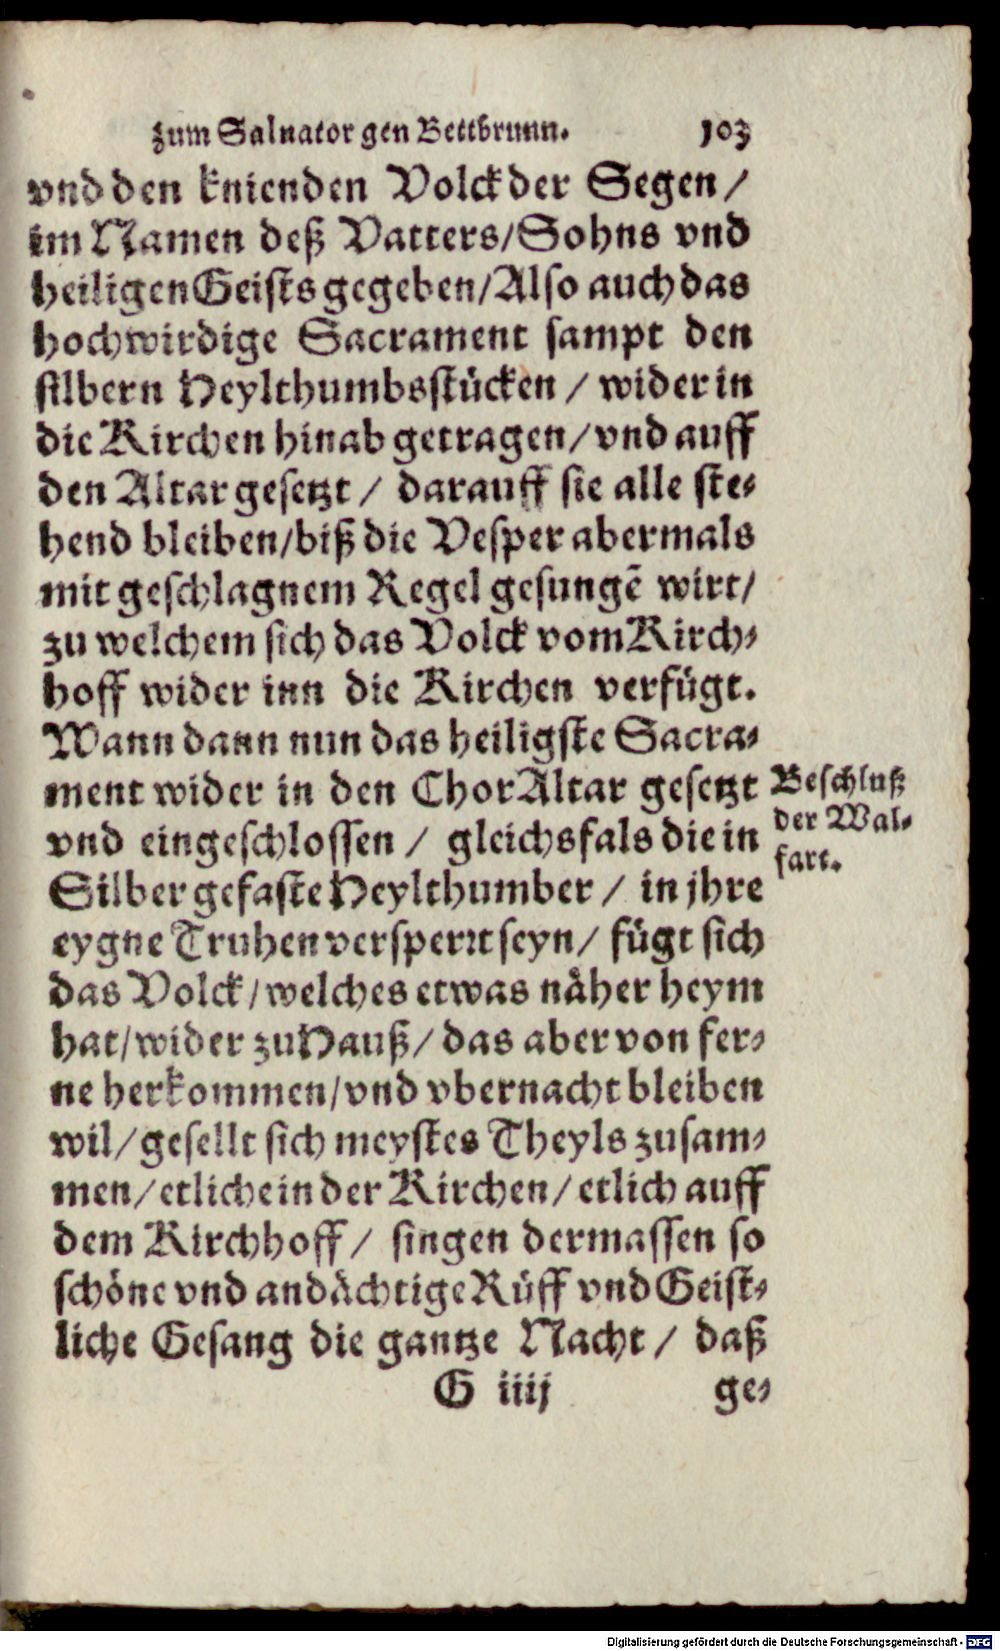 zum Saluator gen Bettbrunn. 103
vnd den knienden Volck der Segen /
im Namen deß Vatters / Sohns vnd
heiligen Geists gegeben / Also auch das
hochwirdige Sacrament sampt den
silbern Heylthumbsstücken / wider in
die Kirchen hinab getragen / vnd auff
den Altar gesetzt / darauff sie alle ste-
hend bleiben / biß die Vesper abermals
mit geschlagnem Regel gesungē wirt /
zu welchem sich das Volck vom Kirch-
hoff wider inn die Kirchen verfügt.
Wann dann nun das heiligste Sacra-
ment wider in den Chor Altar gesetzt
vnd eingeschlossen / gleichsfals die in
Silber gefaste Heylthumber / in jhre
eygne Truhen versperrt seyn / fügt sich
das Volck / welches etwas näher heym
hat / wider zu Hauß / das aber von fer-
ne herkommen / vnd vbernacht bleiben
wil / gesellt sich meystes Theyls zusam-
men / etliche in der Kirchen / etlich auff
dem Kirchhoff / singen dermassen so
schöne vnd andächtige Rüff vnd Geist-
liche Gesang die gantze Nacht / daß
G iiij ge-
Beschluß
der Wal-
fart.
Digitalisierung gefördert durch die Deutsche Forschungsgemeinschaft - DFG